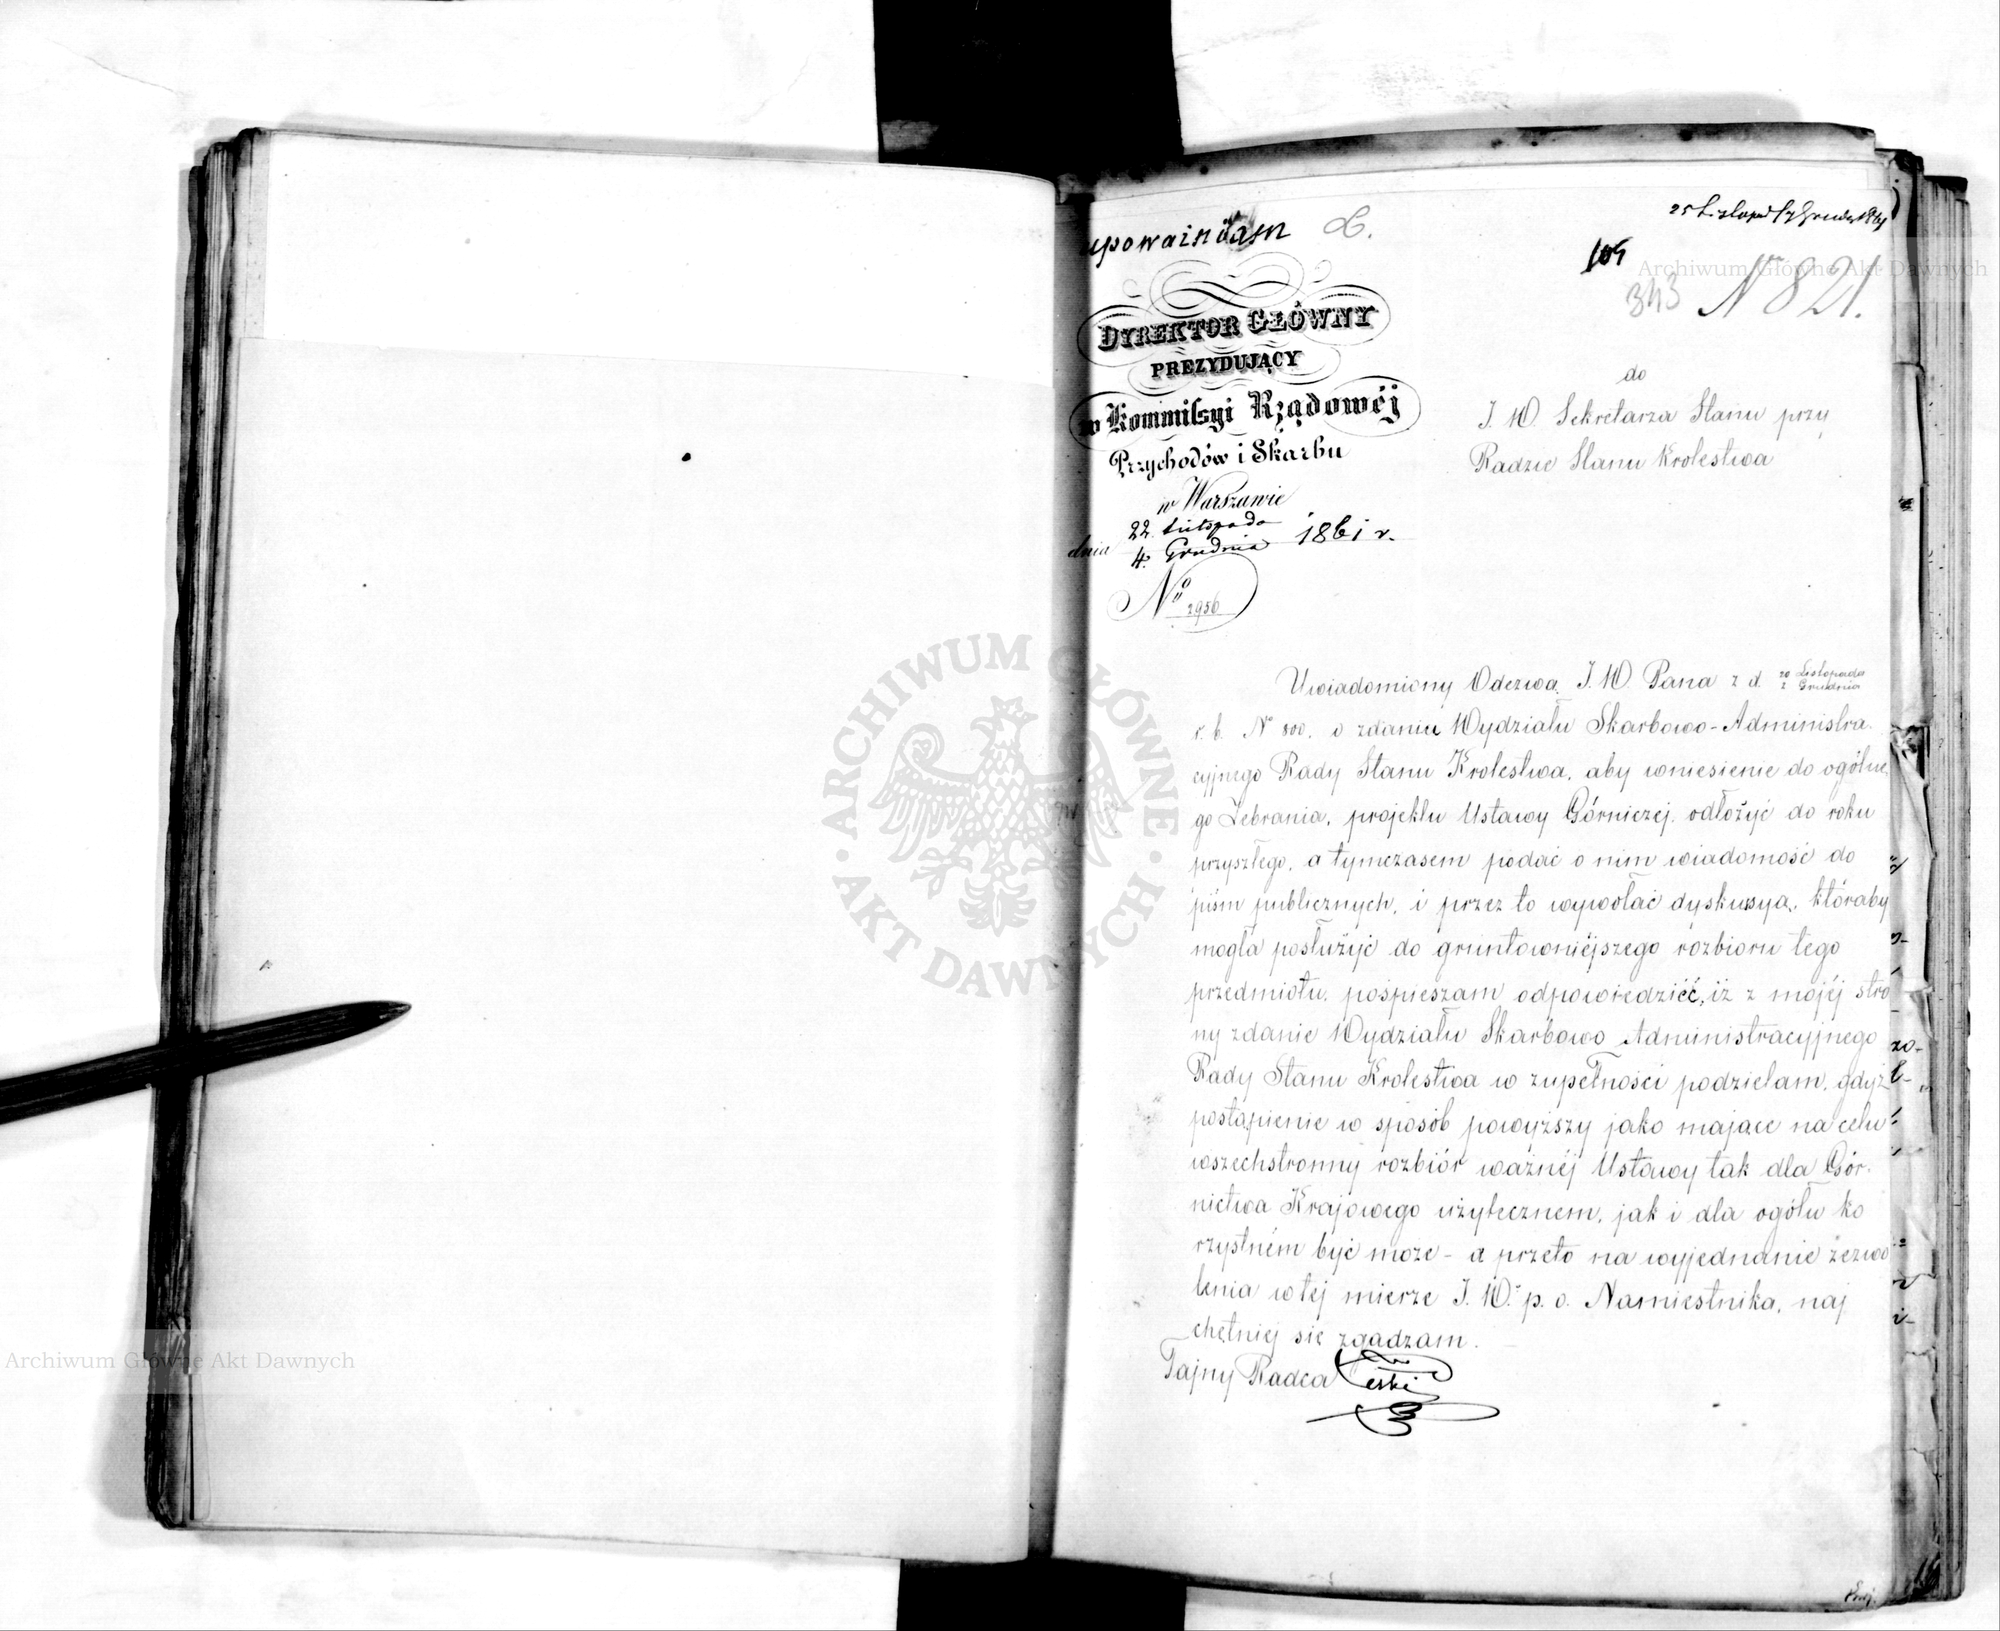 upoważniam
25 Listopad /7 Grud. 1861
105
343 N 821.
DYREKTOR GŁÓWNY
PREZYDUJĄCY
w Kommissyi Rządowéj
Przychodów i Skarbu
w Warszawie
dnia 22. Listopada
4. Grudnia 1861 r.
No 2956
do
J. W. Sekretarza Stanu przy
Radzie Stanu Krolestwa
Uwiadomiony Odezwą J. W. Pana z d. 20 Listopada
2 Grudnia
r. b. No 800. o zdaniu Wydziału Skarbowo-Administra
cyjnego Rady Stanu Krolestwa, aby wniesienie do ogólne
go Zebrania, projektu Ustawy Górniczej, odłożyć do roku
przyszłego, a tymczasem podać o nim wiadomość do
pism publicznych, i przez to wywołać dyskusyą, któraby
mogła posłużyć do gruntowniéjszego rozbioru tego
przedmiotu, pośpieszam odpowiedzieć, iż z mojéj stro
ny zdanie Wydziału Skarbowo Administracyjnego
Rady Stanu Krolestwa w zupełności podzielam, gdyż
postąpienie w sposób powyższy jako mające na celu
wszechstronny rozbiór ważnéj Ustawy tak dla Gór-
nictwa Krajowego użytecznem, jak i dla ogółu ko
rzystném być może - a przeto na wyjednanie zezwo
lenia w tej mierze J. W. p. o. Namiestnika, naj
chętniej się zgadzam.
Tajny Radca Łęski
Archiwum Główne Akt Dawnych
Archiwum Główne Akt Dawnych
ARCHIWUM GŁÓWNE
AKT DAWNYCH